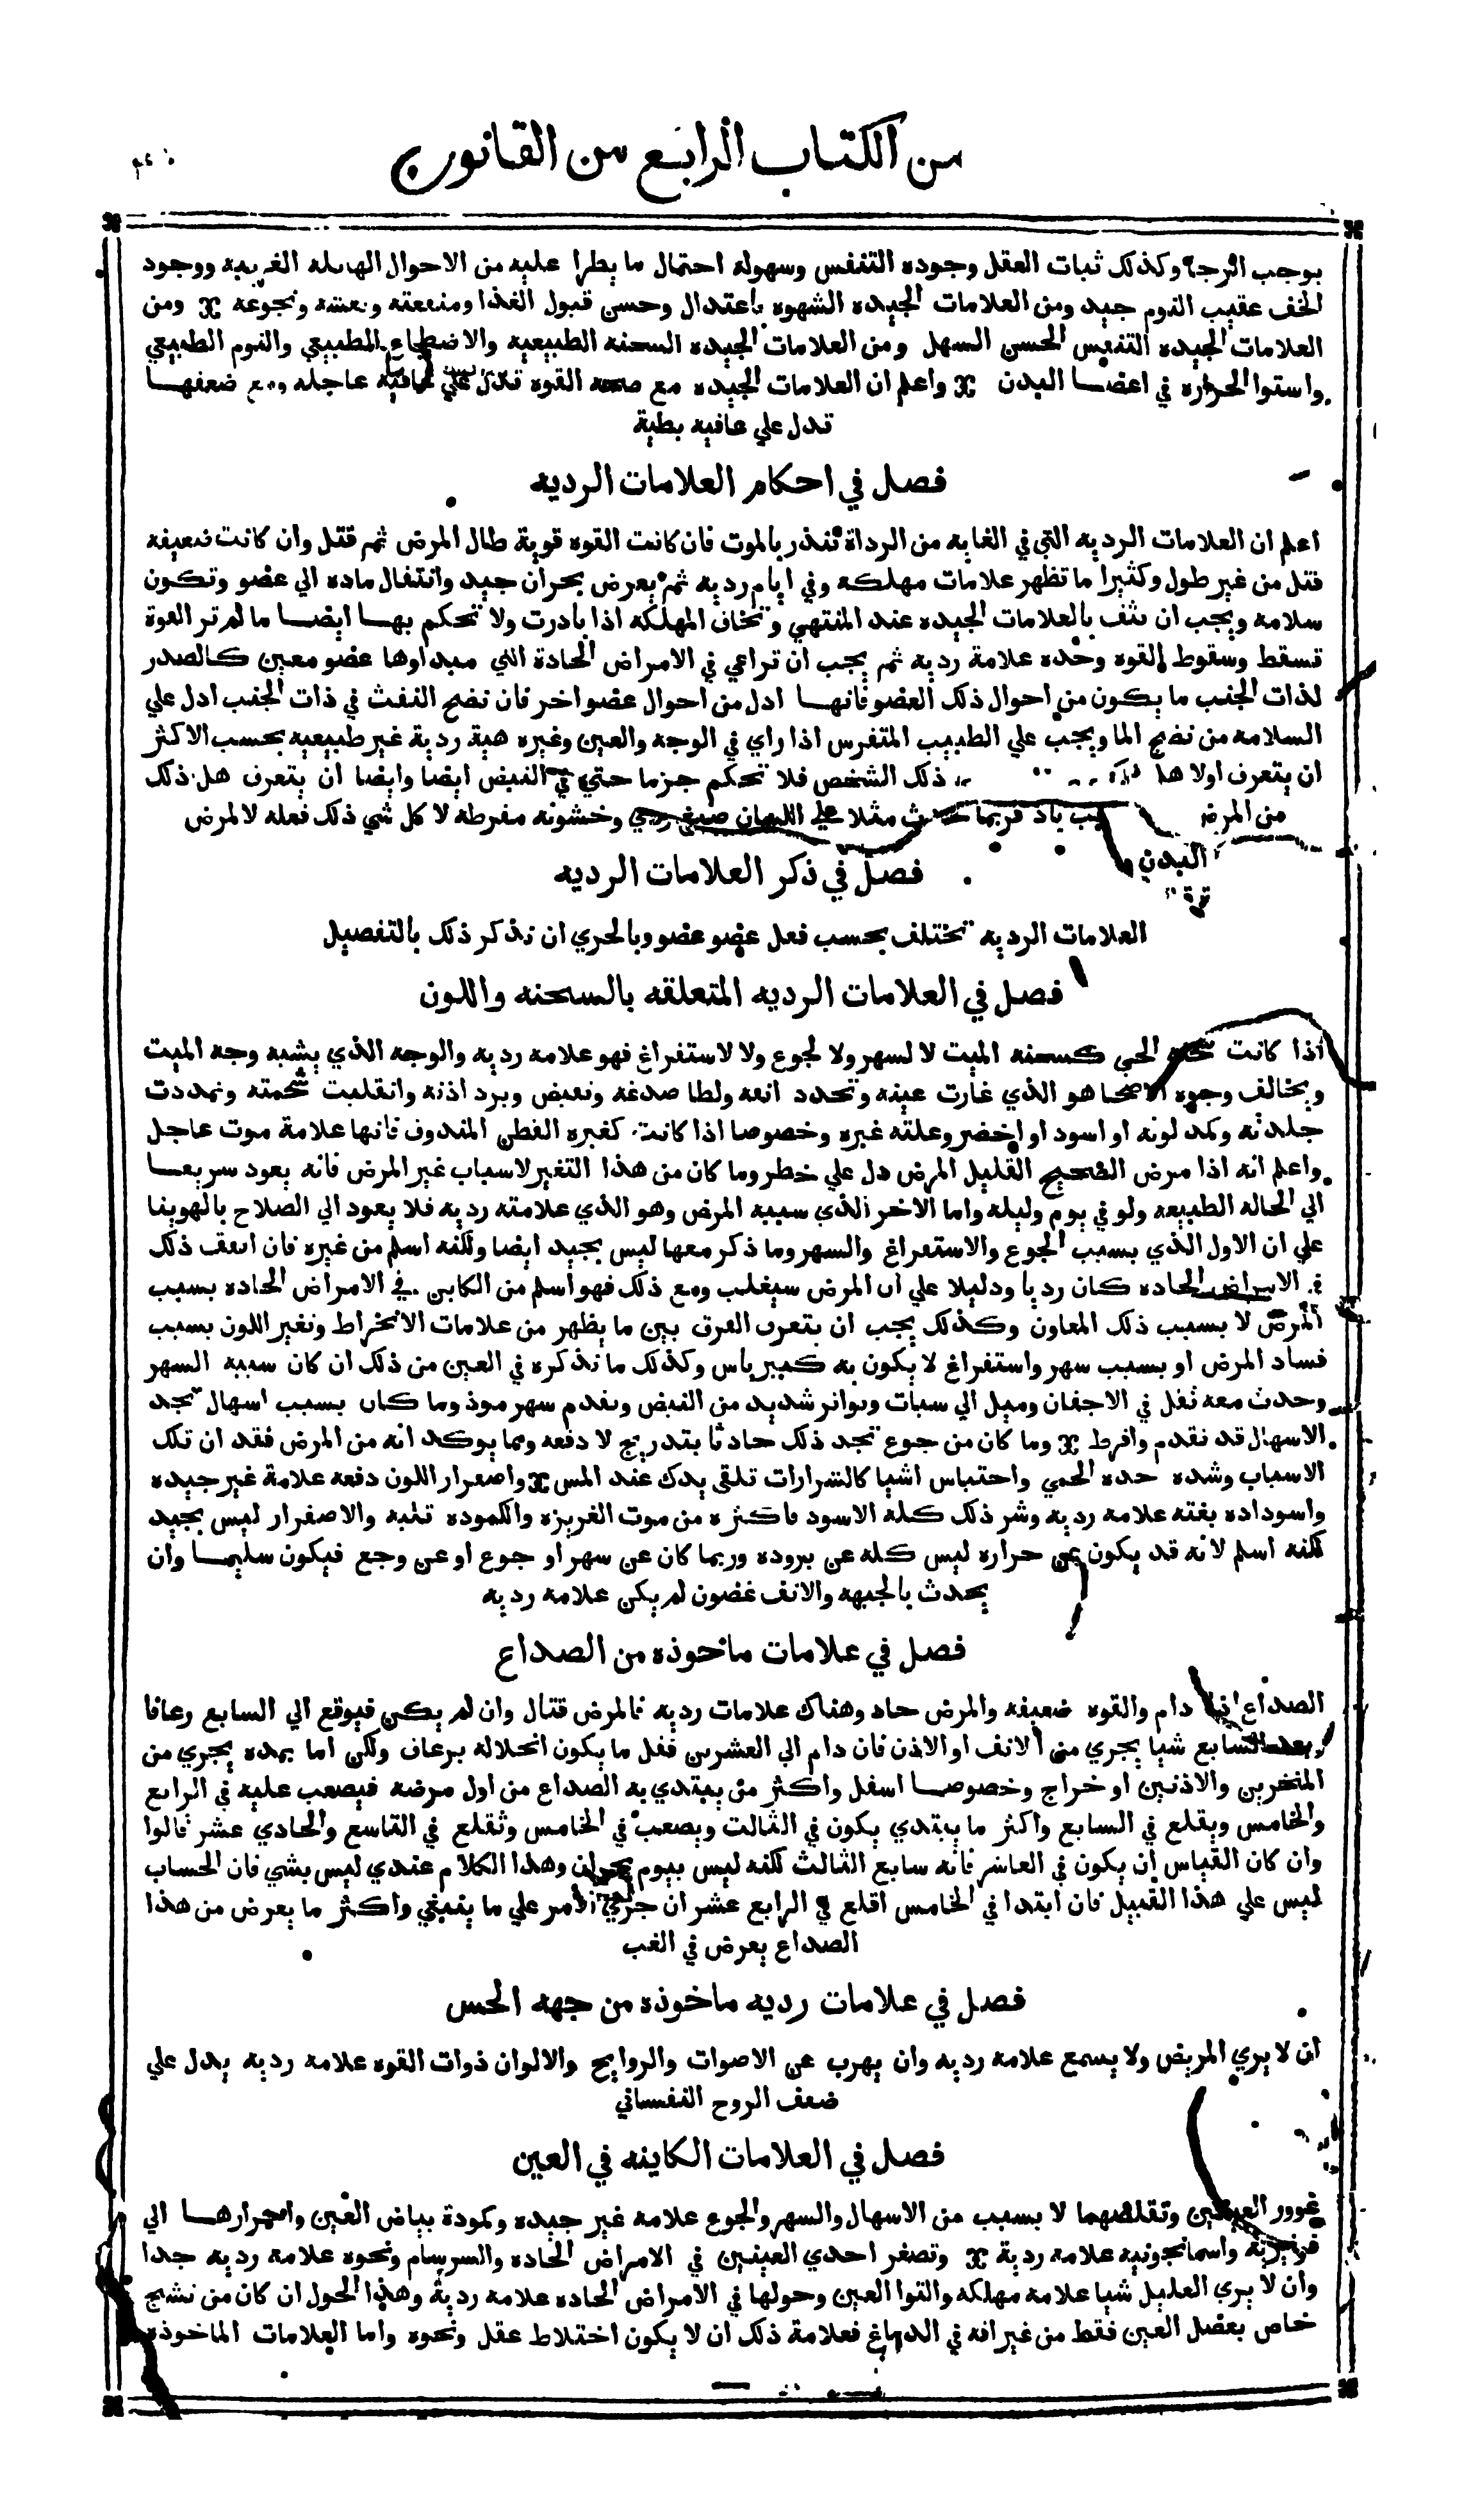 من الكتاب الرابع من القانون
يوجب الرجا وكذلك ثبات العقل وجوده التنفس وسهوله احتمال ما يطرا عليه من الاحوال الهايله الغريبه ووجود
الخف عقيب النوم جيد ومن العلامات الجيده الشهوه باعتدال وحسن قبول الغذا ومنفعته ونجوعه ومن
العلامات الجيده التنفس الحسن السهل ومن العلامات الجيده السحنه الطبيعيه والاضطجاع الطبيعي والنوم الطبيعي
واستوا الحراره في اعضا البدن واعلم ان العلامات الجيده مع صحه القوه تدل علي عافيه عاجله ومع ضعفها
تدل علي عافيه بطية
فصل في احكام العلامات الرديه
اعلم ان العلامات الرديه التي في الغايه من الرداة تنذر بالموت فان كانت القوه قوية طال المرض ثم قتل وان كانت ضعيفه
قتل من غير طول وكثيرا ما تظهر علامات مهلكه وفي ايام رديه ثم يعرض بحران جيد وانتقال ماده الي عضو وتكون
سلامه ويجب ان يثق بالعلامات الجيده عند المنتهي وتخاف المهلكه اذا بادرت ولا تحكم بها ايضا ما لم تر القوة
تسقط وسقوط القوه وحده علامة رديه ثم يجب ان تراعي في الامراض الحادة التي مبداوها عضو معين كالصدر
لذات الجنب ما يكون من احوال ذلك العضو فانها ادل من احوال عضو اخر فان نضج النفث في ذات الجنب ادل علي
السلامه من نضج الما ويجب علي الطبيب المتفرس اذا راي في الوجه والعين وغيره هية ردية غير طبيعيه بحسب الاكثر
ان يتعرف اولا هل ذلك الشخص فلا تحكم جزما حتي في النبض ايضا وايضا ان يتعرف هل ذلك
من المرض باد فربما مثلا علي اللسان صبغ ردي وخشونه مفرطه لا كل شي ذلك فعله لا لمرض
البدن
فصل في ذكر العلامات الرديه
العلامات الرديه تختلف بحسب فعل عضو عضو وبالحري ان نذكر ذلك بالتفصيل
فصل في العلامات الرديه المتعلقه بالسحنه واللون
اذا كانت سحنه الحي كسحنه الميت لا لسهر ولا لجوع ولا لاستفراغ فهو علامه رديه والوجه الذي يشبه وجه الميت
ويخالف وجوه الاصحا هو الذي غارت عينه وتحدد انفه ولطا صدغه وتقبض وبرد اذنه وانقلبت شحمته وتمددت
جلدته وكمد لونه او اسود او اخضر وعلته غبره وخصوصا اذا كانت كغبره القطن المندوف فانها علامة موت عاجل
واعلم انه اذا مرض الصحيح القليل المرض دل علي خطر وما كان من هذا التغير لاسباب غير المرض فانه يعود سريعا
الي الحاله الطبيعه ولو في يوم وليله واما الاخر الذي سببه المرض وهو الذي علامته رديه فلا يعود الي الصلاح بالهوينا
علي ان الاول الذي بسبب الجوع والاستفراغ والسهر وما ذكر معها ليس بجيد ايضا ولكنه اسلم من غيره فان اتفق ذلك
في الامراض الحاده كان رديا ودليلا علي ان المرض سيغلب ومع ذلك فهو اسلم من الكاين في الامراض الحاده بسبب
المرض لا بسبب ذلك المعاون وكذلك يجب ان يتعرف الفرق بين ما يظهر من علامات الانخراط وتغير اللون بسبب
فساد المرض او بسبب سهر واستفراغ لا يكون به كبير باس وكذلك ما نذكره في العين من ذلك ان كان سببه السهر
وحدث معه ثقل في الاجفان وميل الي سبات وتواتر شديد من النبض وتقدم سهر موذ وما كان بسبب اسهال تجد
الاسهال قد تقدم وافرط وما كان من جوع تجد ذلك حادثا بتدريج لا دفعه ومما يوكد انه من المرض فقد ان تلك
الاسباب وشده حده الحمي واحتباس اشيا كالشرارات تلقي يدك عند المس واصفرار اللون دفعه علامة غير جيده
واسوداده بغته علامه رديه وشر ذلك كله الاسود فاكثره من موت الغريزه والكموده تتلبه والاصفرار ليس بجيد
لكنه اسلم لانه قد يكون عن حراره ليس كله عن بروده وربما كان عن سهر او جوع او عن وجع فيكون سليما وان
يحدث بالجبهه والانف غضون لم يكن علامه رديه
فصل في علامات ماخوذه من الصداع
الصداع اذا دام والقوه ضعيفه والمرض حاد وهناك علامات رديه فالمرض قتال وان لم يكن فيوقع الي السابع رعافا
وبعد السابع شيا يجري من الانف او الاذن فان دام الي العشرين فقل ما يكون انحلاله برعاف ولكن اما بمده يجري من
المنخرين والاذنين او خراج وخصوصا اسفل واكثر من يبتدي به الصداع من اول مرضه فيصعب عليه في الرابع
والخامس ويقلع في السابع واكثر ما يبتدي يكون في الثالث ويصعب في الخامس وتقلع في التاسع والحادي عشر قالوا
وان كان القياس ان يكون في العاشر فانه سابع الثالث لكنه ليس بيوم بحران وهذا الكلام عندي ليس بشي فان الحساب
ليس علي هذا القبيل فان ابتدا في الخامس اقلع في الرابع عشر ان جري الامر علي ما ينبغي واكثر ما يعرض من هذا
الصداع يعرض في الغب
فصل في علامات رديه ماخوذه من جهه الحس
ان لا يري المريض ولا يسمع علامه رديه وان يهرب عن الاصوات والروايح والالوان ذوات القوه علامه رديه يدل علي
ضعف الروح النفساني
فصل في العلامات الكاينه في العين
غوور العينين وتقلصهما لا بسبب من الاسهال والسهر والجوع علامه غير جيده وكمودة بياض العين واحمرارها الي
فرفيرية واسمانجونيه علامه ردية وتصغر احدي العينين في الامراض الحاده والسرسام ونحوه علامه رديه جدا
وان لا يري العليل شيا علامه مهلكه والتوا العين وحولها في الامراض الحاده علامه ردية وهذا الحول ان كان من تشنج
خاص بعضل العين فقط من غير افه في الدماغ فعلامة ذلك ان لا يكون اختلاط عقل ونحوه واما العلامات الماخوذه